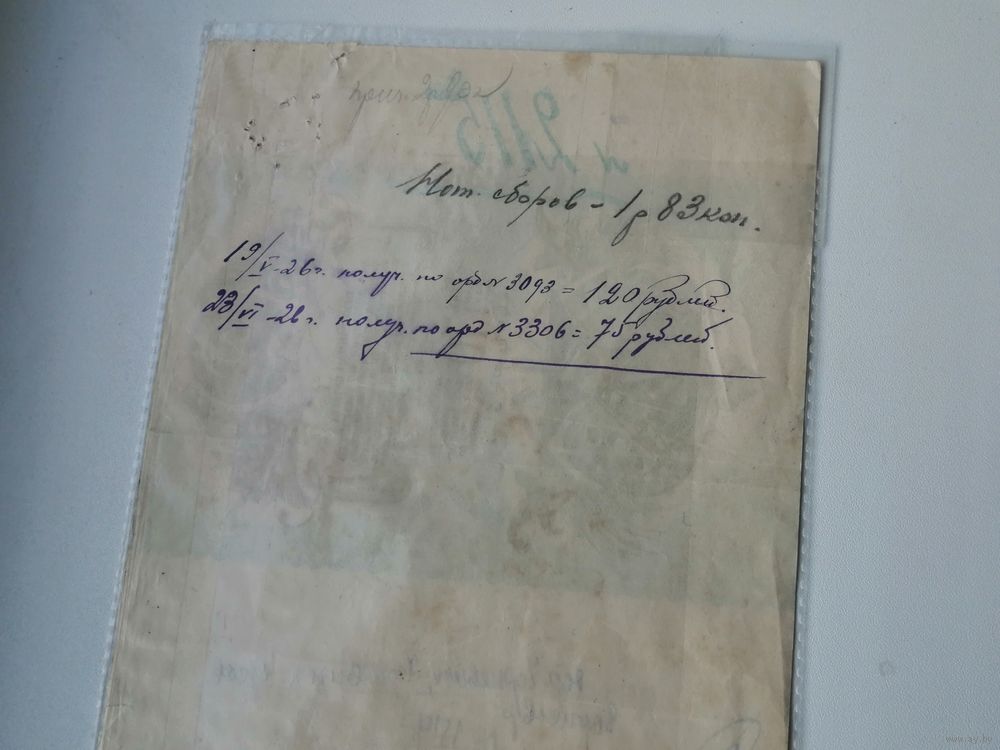 Нот. сборов - 1 р 83 коп.
19/V-26 г. получ. по орд № 3093 = 120 рублей.
23/VI-26 г. получ. по орд № 3306 = 75 рублей.
www.ay.by